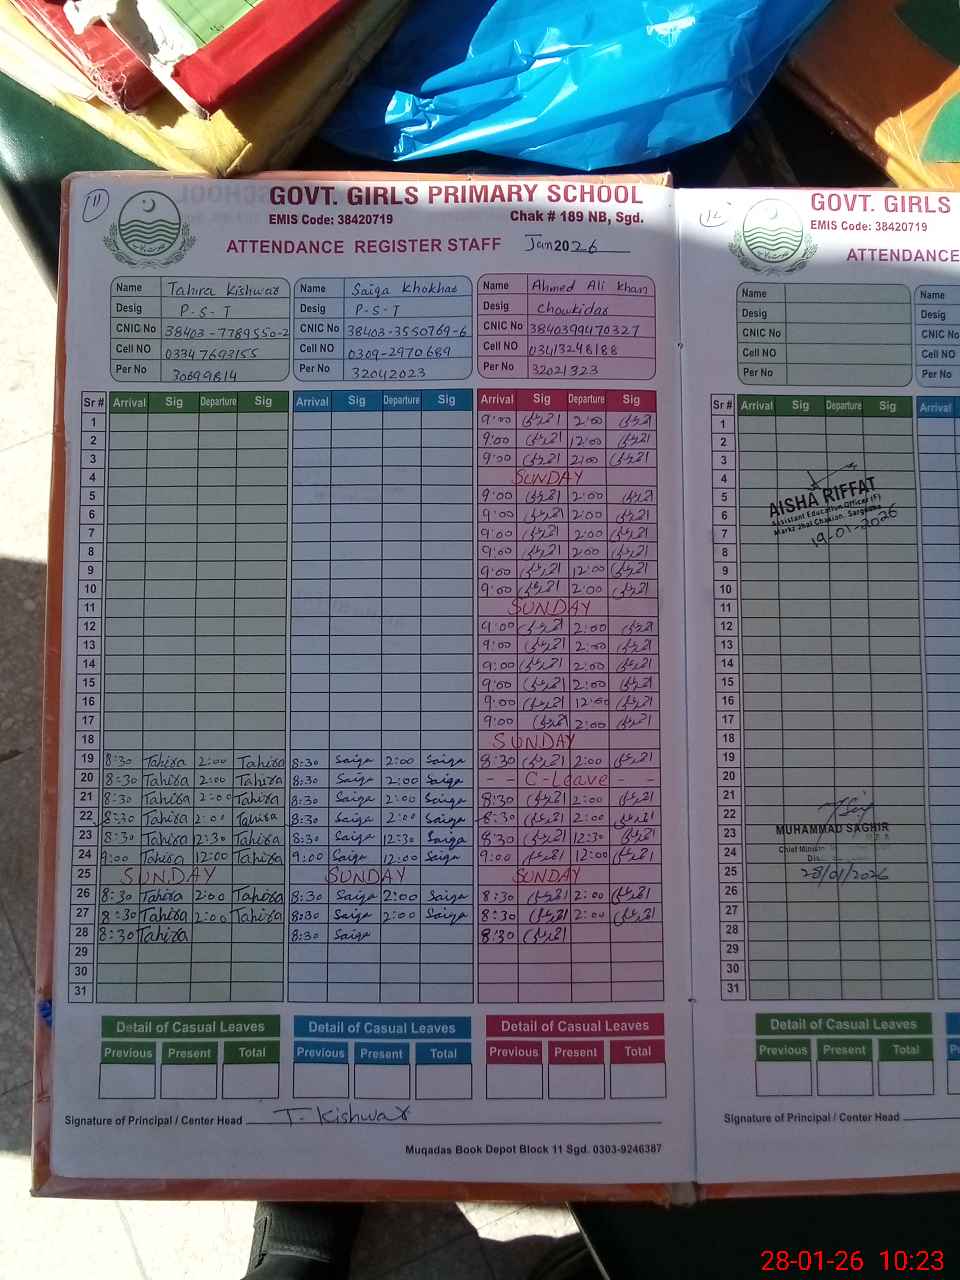 11
GOVT. GIRLS PRIMARY SCHOOL
EMIS Code: 38420719 Chak # 189 NB, Sgd.
ATTENDANCE REGISTER STAFF Jan 2026
Name Tahira Kishwar Name Saiqa Khokhar Name Ahmed Ali Khan
Desig P-S-T Desig P-S-T Desig Chowkidar
CNIC No 38403-7789550-2 CNIC No 38403-3550769-6 CNIC No 3840399470327
Cell NO 03347693155 Cell NO 0309-2970689 Cell NO 03413248188
Per No 30699814 Per No 32042023 Per No 32021323
Sr # Arrival Sig Departure Sig Arrival Sig Departure Sig Arrival Sig Departure Sig
1 9:00 2:00
2 9:00 12:00
3 9:00 2:00
4 SUNDAY
5 9:00 2:00
6 9:00 2:00
7 9:00 2:00
8 9:00 2:00
9 9:00 12:00
10 9:00 2:00
11 SUNDAY
12 9:00 2:00
13 9:00 2:00
14 9:00 2:00
15 9:00 2:00
16 9:00 12:00
17 9:00 2:00
18 SUNDAY
19 8:30 Tahira 2:00 Tahira 8:30 Saiqa 2:00 Saiqa 8:30 2:00
20 8:30 Tahira 2:00 Tahira 8:30 Saiqa 2:00 Saiqa - - C-Leave - -
21 8:30 Tahira 2:00 Tahira 8:30 Saiqa 2:00 Saiqa 8:30 2:00
22 8:30 Tahira 2:00 Tahira 8:30 Saiqa 2:00 Saiqa 8:30 2:00
23 8:30 Tahira 12:30 Tahira 8:30 Saiqa 12:30 Saiqa 8:30 12:30
24 9:00 Tahira 12:00 Tahira 9:00 Saiqa 12:00 Saiqa 9:00 12:00
25 SUNDAY SUNDAY SUNDAY
26 8:30 Tahira 2:00 Tahira 8:30 Saiqa 2:00 Saiqa 8:30 2:00
27 8:30 Tahira 2:00 Tahira 8:30 Saiqa 2:00 Saiqa 8:30 2:00
28 8:30 Tahira 8:30 Saiqa 8:30
29
30
31
Detail of Casual Leaves Detail of Casual Leaves Detail of Casual Leaves
Previous Present Total Previous Present Total Previous Present Total
Signature of Principal / Center Head T. Kishwar
Muqadas Book Depot Block 11 Sgd. 0303-9246387
12
GOVT. GIRLS
EMIS Code: 38420719
ATTENDANCE
Name Name
Desig Desig
CNIC No CNIC No
Cell NO Cell NO
Per No Per No
Sr # Arrival Sig Departure Sig Arrival
1
2
3
4
5
6
7
8
9
10
11
12
13
14
15
16
17
18
19
20
21
22
23
24
25
26
27
28
29
30
31
AISHA RIFFAT
Assistant Education Officer (F)
19-01-2026
MUHAMMAD SAGHIR
Chief Minister
28/01/2026
Detail of Casual Leaves
Previous Present Total
Signature of Principal / Center Head
28-01-26 10:23